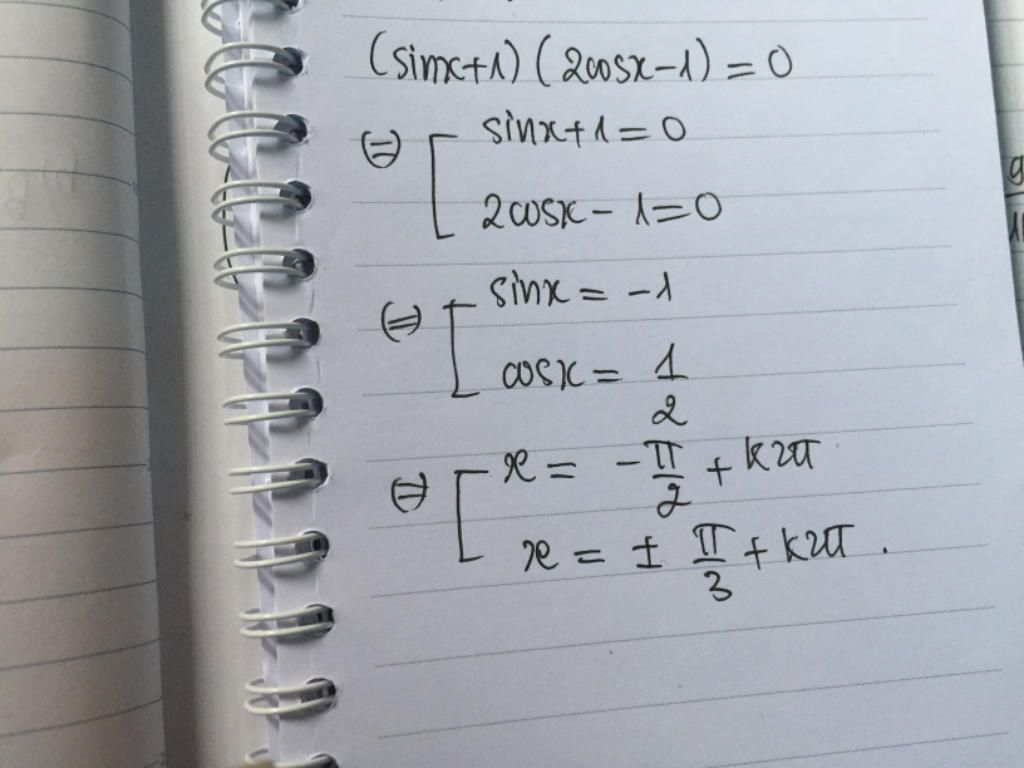 (sinx+1)(2cosx-1)=0
(=) [ sinx+1=0
2cosx-1=0
(=) [ sinx=-1
cosx=1/2
(=) [ x=-π/2+k2π
x=±π/3+k2π.